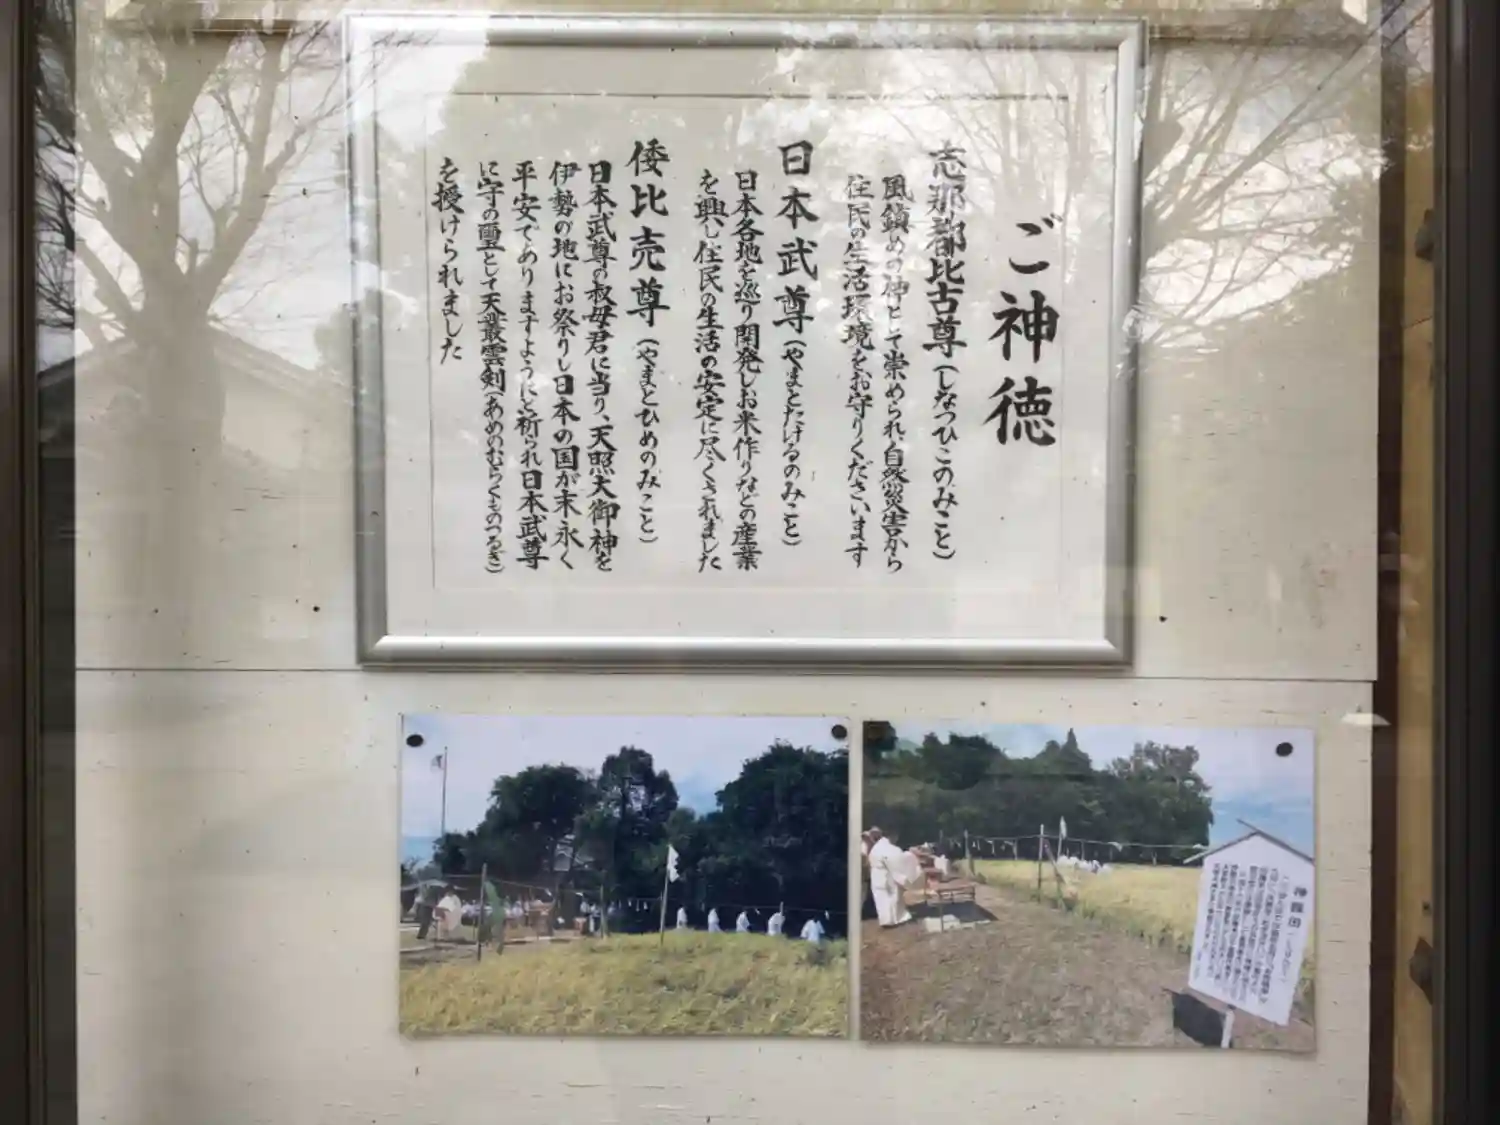 ご神徳
志那都比古尊(しなつひこのみこと)
風鎮めの神として崇められ、自然災害から
住民の生活環境をお守りくださいます
日本武尊(やまとたけるのみこと)
日本各地を巡り開発しお米作りなどの産業
を興し住民の生活の安定に尽くされました
倭比売尊(やまとひめのみこと)
日本武尊の叔母君に当り、天照大御神を
伊勢の地にお祭りし日本の国が末永く
平安でありますようにと祈られ日本武尊
に守の璽として天叢雲剣(あめのむらくものつるぎ)
を授けられました
神饌田